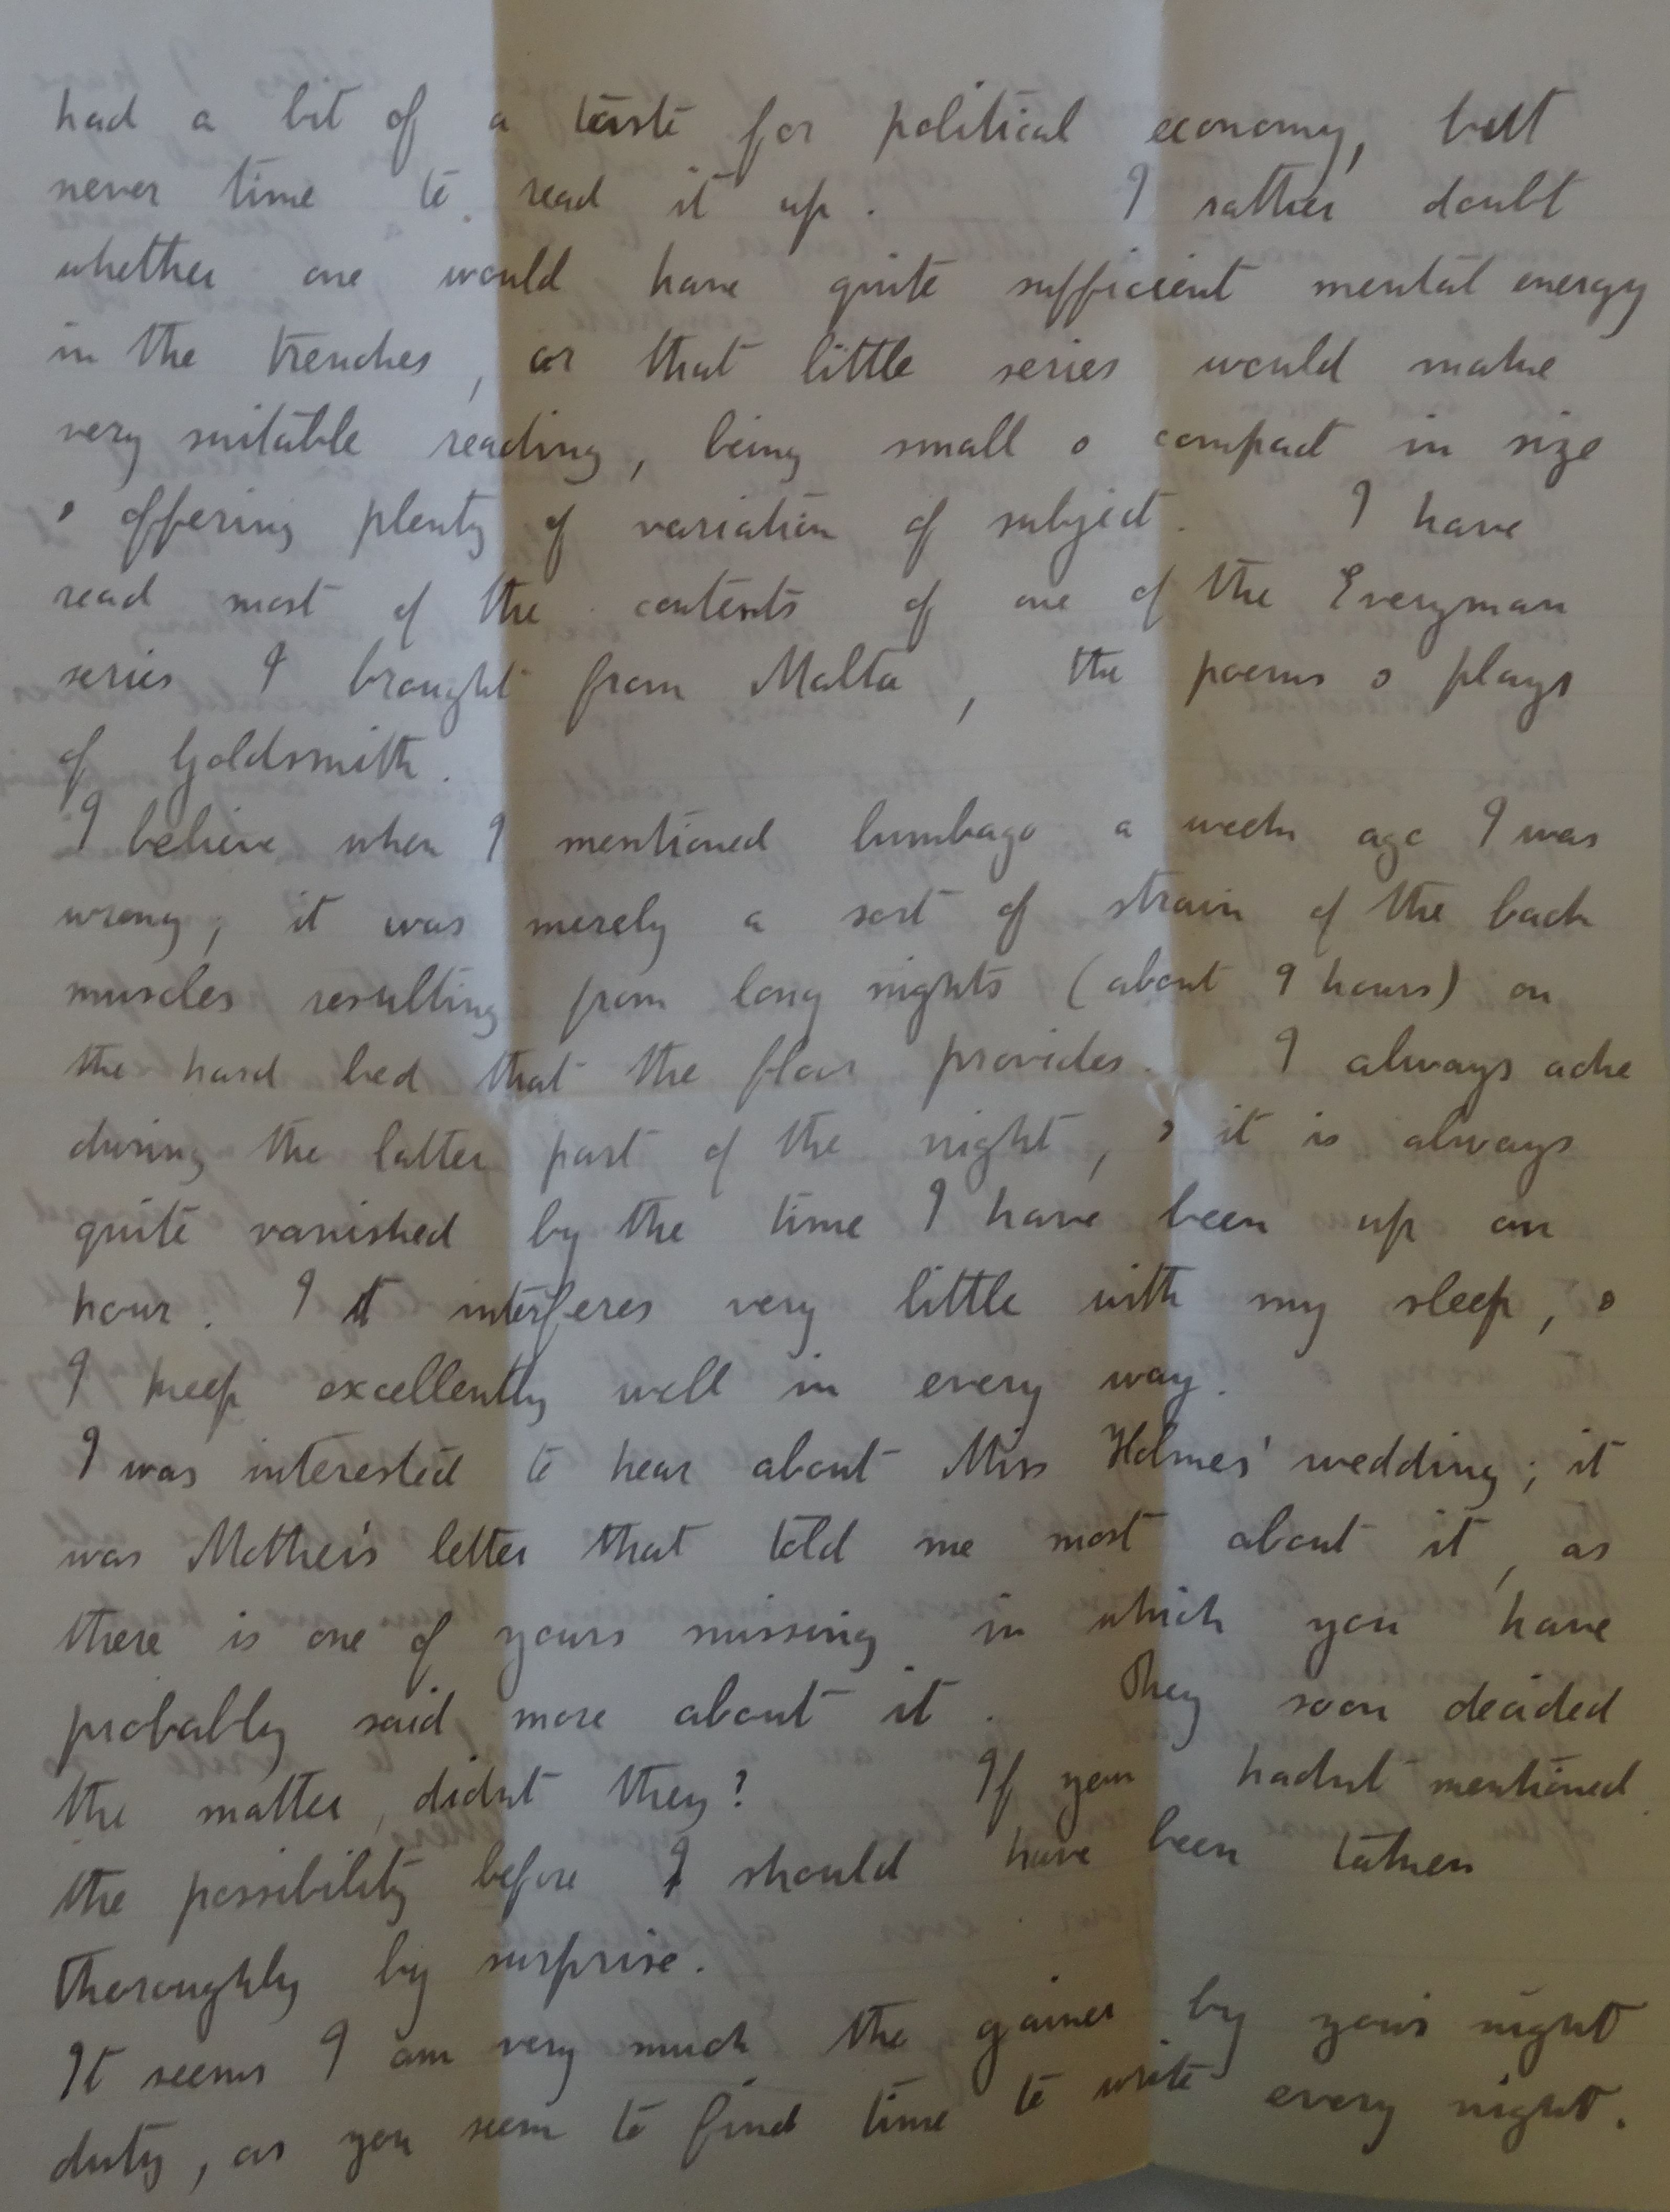 had a bit of a taste for political economy, but
never time to read it up. I rather doubt
whether one would have quite sufficient mental energy
in the trenches, or that little series would make
very suitable reading, being small & compact in size
& offering plenty of variation of subject. I have
read most of the contents of one of the Everyman
series I brought from Malta, the poems & plays
of Goldsmith.
I believe when I mentioned lumbago a week ago I was
wrong; it was merely a sort of strain of the back
muscles resulting from long nights (about 9 hours) on
the hard bed that the floor provides. I always ache
during the latter part of the night, & it is always
quite vanished by the time I have been up an
hour. I it interferes very little with my sleep, &
I keep excellently well in every way.
I was interested to hear about Miss Holmes' wedding; it
was Mother's letter that told me most about it, as
there is one of yours missing in which you have
probably said more about it. They soon decided
the matter, didn't they? If you hadn't mentioned
the possibility before I should have been taken
thoroughly by surprise.
It seems I am very much the gainer by your night
duty, as you seem to find time to write every night.